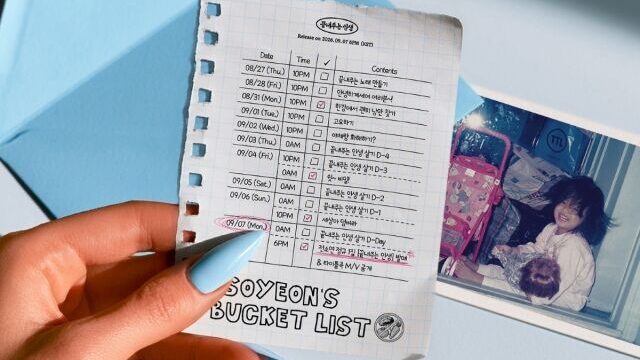 끝내주는 인생
Release on 2026. 09. 07 6PM (KST)
Date Time ✓ Contents
08/27 (Thu.) 10PM 끝내주는 노래 만들기
08/28 (Fri.) 10PM
08/31 (Mon.) 10PM 한강에서 괜히 낭만 찾기
09/01 (Tue.) 10PM 고요하기
09/02 (Wed.) 10PM 화해하기?
09/03 (Thu.) 0AM 끝내주는 인생 살기 D-4
09/04 (Fri.) 0AM 끝내주는 인생 살기 D-3
비밀
09/05 (Sat.) 0AM 끝내주는 인생 살기 D-2
09/06 (Sun.) 0AM 끝내주는 인생 살기 D-1
10PM 세상아 덤벼라
09/07 (Mon.) 0AM 끝내주는 인생 살기 D-Day
6PM 전소연 정규 1집 [끝내주는 인생] 발매
& 타이틀곡 M/V 공개
SOYEON'S
BUCKET LIST